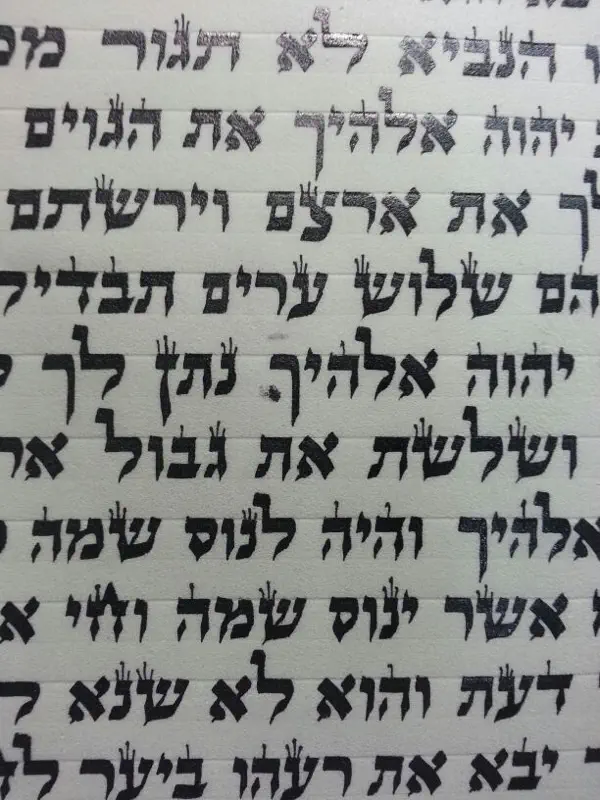 הנביא לא תגור
יהוה אלהיך את הגוים
לך את ארצם וירשתם
הם שלוש ערים תבדיל
יהוה אלהיך נתן לך
ושלשת את גבול אר
אלהיך והיה לנוס שמה
אשר ינוס שמה וחי א
דעת והוא לא שנא
יבא את רעהו ביער